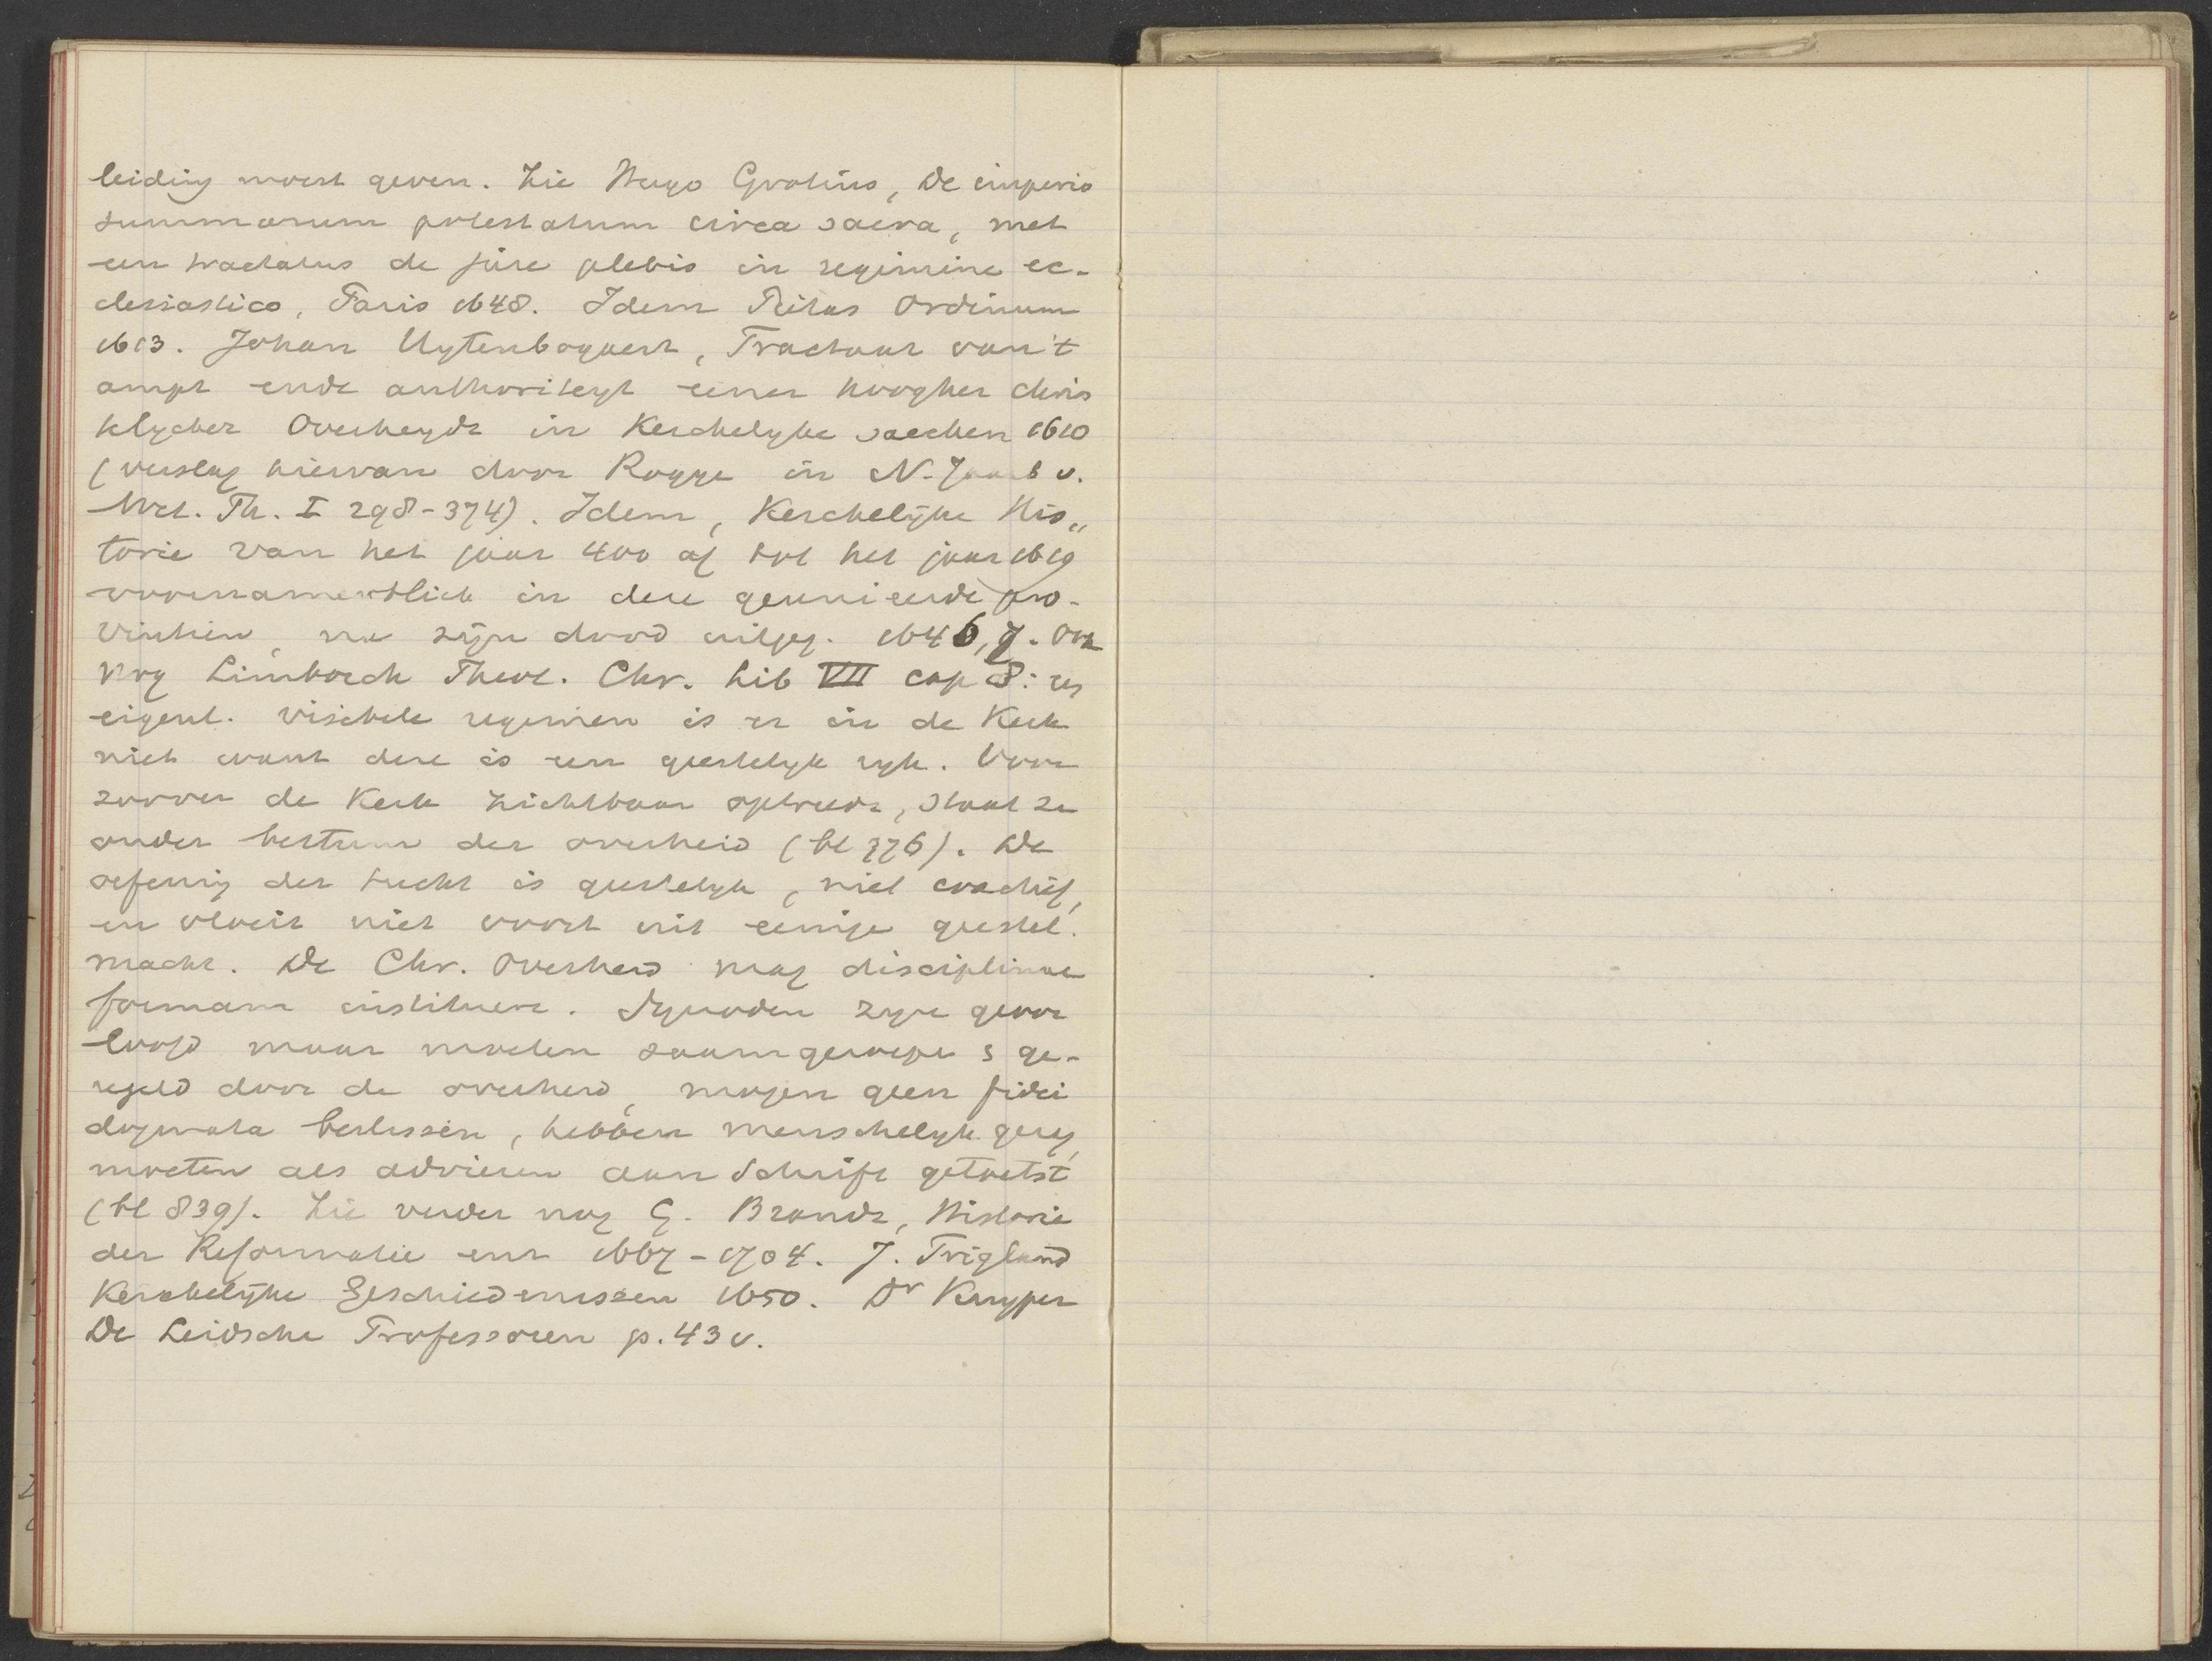 leiding moest geven. Zie Hugo Grotius, De imperio
summarum potestatum circa sacra, met
een tractatus de jure plebis in regimine ec-
clesiastico, Paris 1648. Idem Pietas Ordinum
1613. Johan Uytenbogaert, Tractaat van 't
ampt ende authoriteyt eener hoogher chris
telycker Overheydt in Kerckelyke saecken 1610
(verslag hiervan door Rogge in N. Jaarb v.
Wet. Th. I 298-374). Idem, Kerckelijke His„
torie van het jaar 400 af tot het jaar 1619
voornamentlick in dese geunieerde pro-
vintien, na zijn dood uitgeg. 1646, 7. Ook
nog Limborch Theol. Chr. Lib VII cap 8:
eigenl. visibele regimen is er in de Kerk
niet want deze is een geestelyk ryk. Voor
zoover de Kerk zichtbaar optreedt, staat ze
onder bestuur der overheid (bl 776). De
oefening der tucht is geestelyk, niet coactief,
en vloeit niet voort uit eenige geestel.
macht. De Chr. Overheid mag disciplinae
formam instituere. Synoden zyn geoor
loofd maar moeten saamgeroepen s ge-
regeld door de overheid, mogen geen fidei
dogmata beslissen, hebben menschelyk gezag,
moeten als adviezen aan Schrift getoetst
(bl 839). Zie verder nog G. Brandt, Historie
der Reformatie enz 1667-1704. J. Trigland
Kerckelijke Geschiedenissen 1650. Dr Kuyper
De Leidsche Professoren p. 43 v.